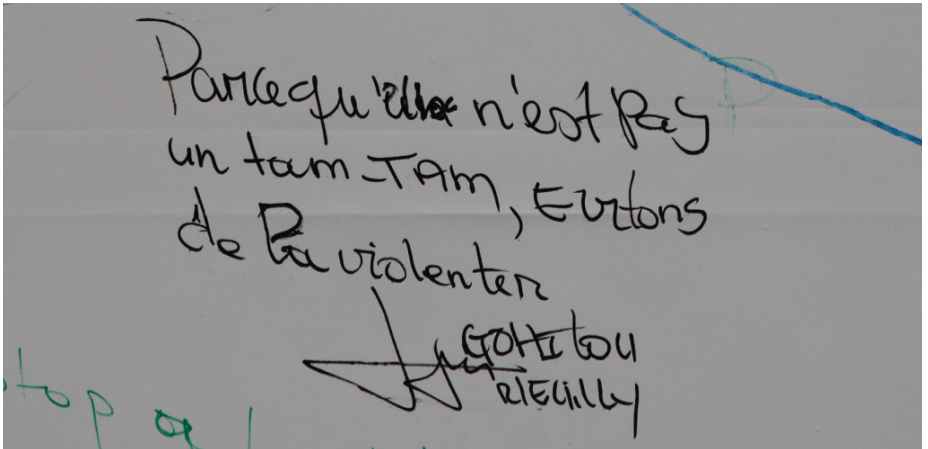 Parcequ'elle n'est pas
un tam-TAm, Evitons
de la violenter
GOHI LOU
stop a